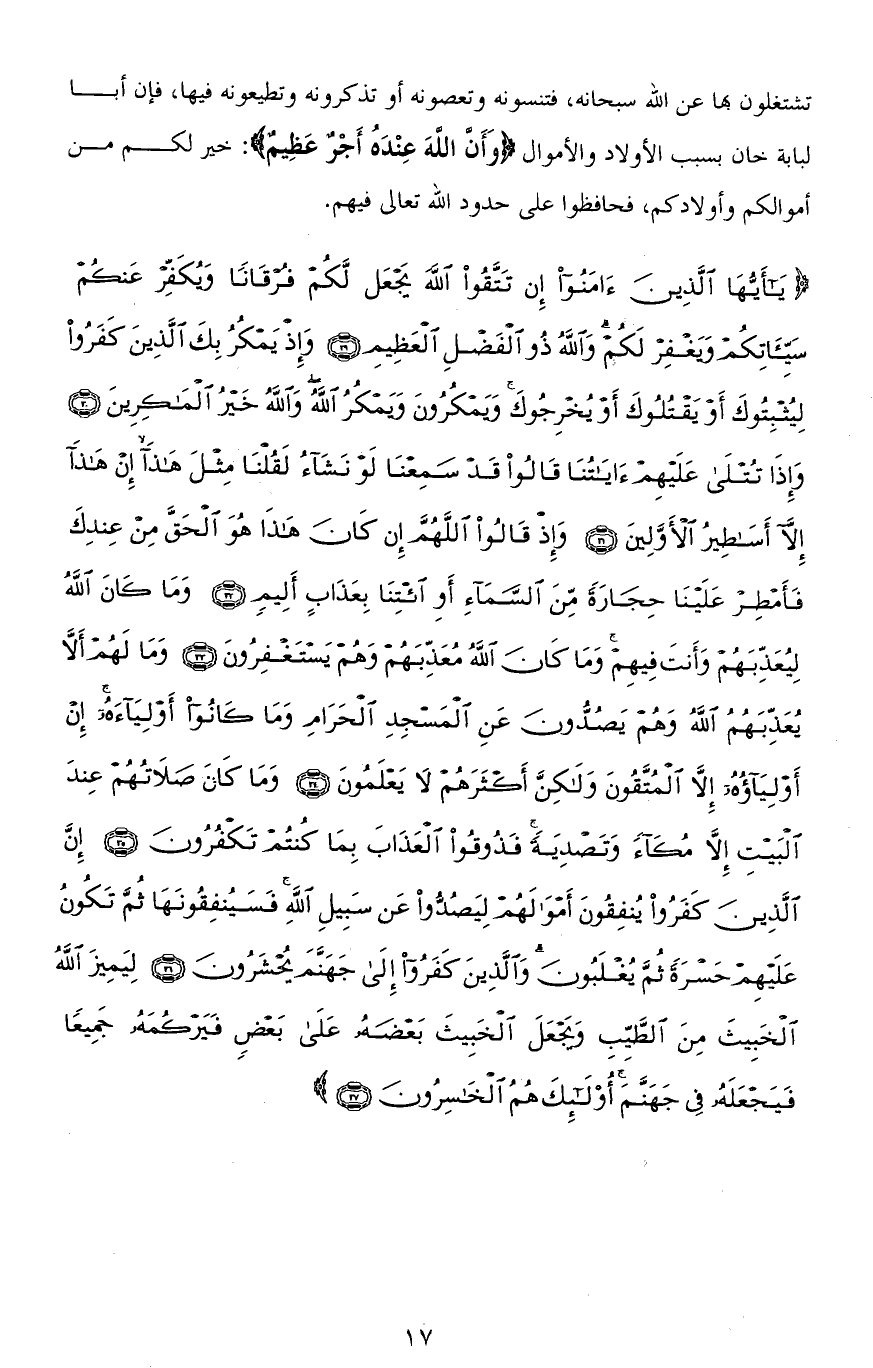 تشتغلون بها عن الله سبحانه، فتنسونه وتعصونه أو تذكرونه وتطيعونه فيها، فإن أبـــا
لبابة خان بسبب الأولاد والأموال ﴿وَأَنَّ اللَّهَ عِنْدَهُ أَجْرٌ عَظِيمٌ﴾: خير لكـــم مـــن
أموالكم وأولادكم، فحافظوا على حدود الله تعالى فيهم.
﴿ يَـٰٓأَيُّهَا ٱلَّذِينَ ءَامَنُوٓاْ إِن تَتَّقُواْ ٱللَّهَ يَجْعَل لَّكُمْ فُرْقَانًا وَيُكَفِّرْ عَنكُمْ
سَيِّـَٔاتِكُمْ وَيَغْفِرْ لَكُمْ ۗ وَٱللَّهُ ذُو ٱلْفَضْلِ ٱلْعَظِيمِ ٢٩ وَإِذْ يَمْكُرُ بِكَ ٱلَّذِينَ كَفَرُواْ
لِيُثْبِتُوكَ أَوْ يَقْتُلُوكَ أَوْ يُخْرِجُوكَ ۚ وَيَمْكُرُونَ وَيَمْكُرُ ٱللَّهُ ۖ وَٱللَّهُ خَيْرُ ٱلْمَـٰكِرِينَ ٣٠
وَإِذَا تُتْلَىٰ عَلَيْهِمْ ءَايَـٰتُنَا قَالُواْ قَدْ سَمِعْنَا لَوْ نَشَآءُ لَقُلْنَا مِثْلَ هَـٰذَآ ۙ إِنْ هَـٰذَآ
إِلَّآ أَسَـٰطِيرُ ٱلْأَوَّلِينَ ٣١ وَإِذْ قَالُواْ ٱللَّهُمَّ إِن كَانَ هَـٰذَا هُوَ ٱلْحَقَّ مِنْ عِندِكَ
فَأَمْطِرْ عَلَيْنَا حِجَارَةً مِّنَ ٱلسَّمَآءِ أَوِ ٱئْتِنَا بِعَذَابٍ أَلِيمٍ ٣٢ وَمَا كَانَ ٱللَّهُ
لِيُعَذِّبَهُمْ وَأَنتَ فِيهِمْ ۚ وَمَا كَانَ ٱللَّهُ مُعَذِّبَهُمْ وَهُمْ يَسْتَغْفِرُونَ ٣٣ وَمَا لَهُمْ أَلَّا
يُعَذِّبَهُمُ ٱللَّهُ وَهُمْ يَصُدُّونَ عَنِ ٱلْمَسْجِدِ ٱلْحَرَامِ وَمَا كَانُوٓاْ أَوْلِيَآءَهُۥٓ ۚ إِنْ
أَوْلِيَآؤُهُۥٓ إِلَّا ٱلْمُتَّقُونَ وَلَـٰكِنَّ أَكْثَرَهُمْ لَا يَعْلَمُونَ ٣٤ وَمَا كَانَ صَلَاتُهُمْ عِندَ
ٱلْبَيْتِ إِلَّا مُكَآءً وَتَصْدِيَةً ۚ فَذُوقُواْ ٱلْعَذَابَ بِمَا كُنتُمْ تَكْفُرُونَ ٣٥ إِنَّ
ٱلَّذِينَ كَفَرُواْ يُنفِقُونَ أَمْوَٰلَهُمْ لِيَصُدُّواْ عَن سَبِيلِ ٱللَّهِ ۚ فَسَيُنفِقُونَهَا ثُمَّ تَكُونُ
عَلَيْهِمْ حَسْرَةً ثُمَّ يُغْلَبُونَ ۗ وَٱلَّذِينَ كَفَرُوٓاْ إِلَىٰ جَهَنَّمَ يُحْشَرُونَ ٣٦ لِيَمِيزَ ٱللَّهُ
ٱلْخَبِيثَ مِنَ ٱلطَّيِّبِ وَيَجْعَلَ ٱلْخَبِيثَ بَعْضَهُۥ عَلَىٰ بَعْضٍ فَيَرْكُمَهُۥ جَمِيعًا
فَيَجْعَلَهُۥ فِى جَهَنَّمَ ۚ أُوْلَـٰٓئِكَ هُمُ ٱلْخَـٰسِرُونَ ٣٧ ﴾
١٧